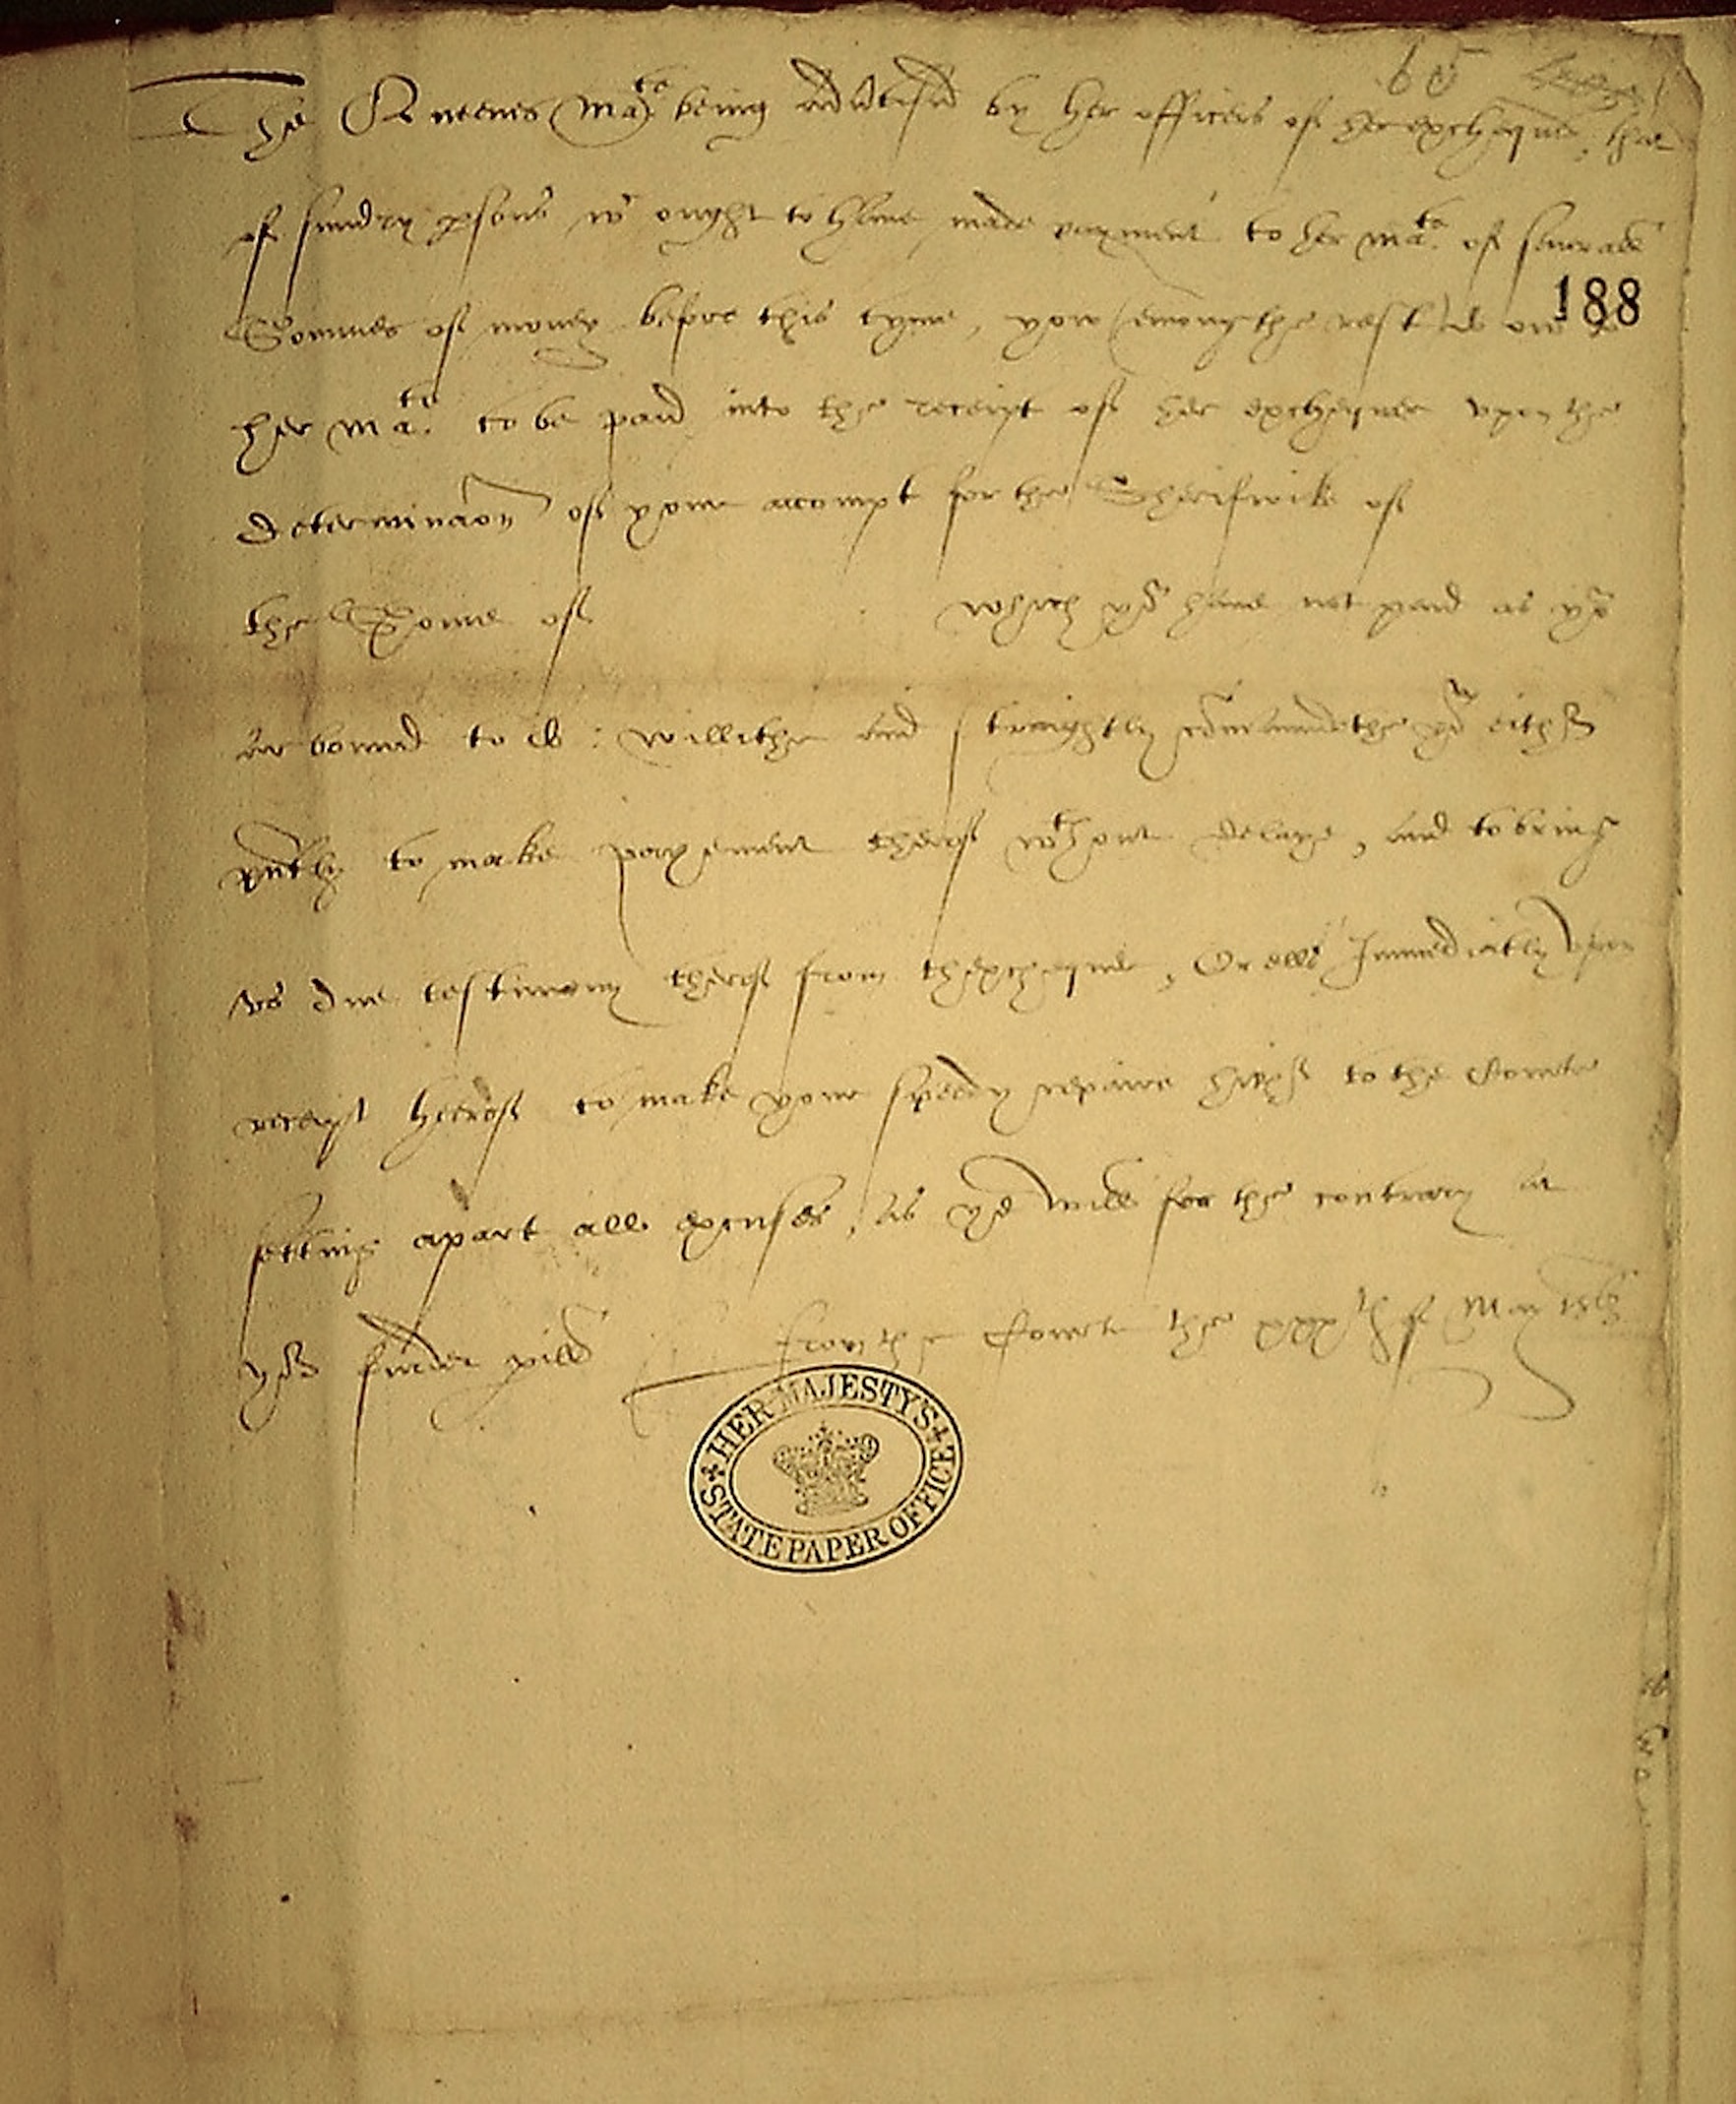 65
The Queenes Ma.te being advertised by her officers of her exchequer, that
of sundry psons wch ought to have made payment to her Ma.te of severall
Sommes of money before this tyme, yow (emong the rest) do owe
188
her Ma.te to be paid into the receipt of her exchequer vpon the
determinacon of your accompt for the Sherifwike of
the Some of which yow have not paid as yow
ar bound to do : willethe and straightly comaundethe yow either
pntly to make payement therof wthout delaye, and to bring
vs due testimony therof from thexchequer, Or ells Immediatly vpon
receipt herof to make your speedy repaire hither to the Courte
setting apart all excuses, as yow will for the contrary at
yor further pill from the Courte the xxxth of May 156
HER MAJESTY'S STATE PAPER OFFICE